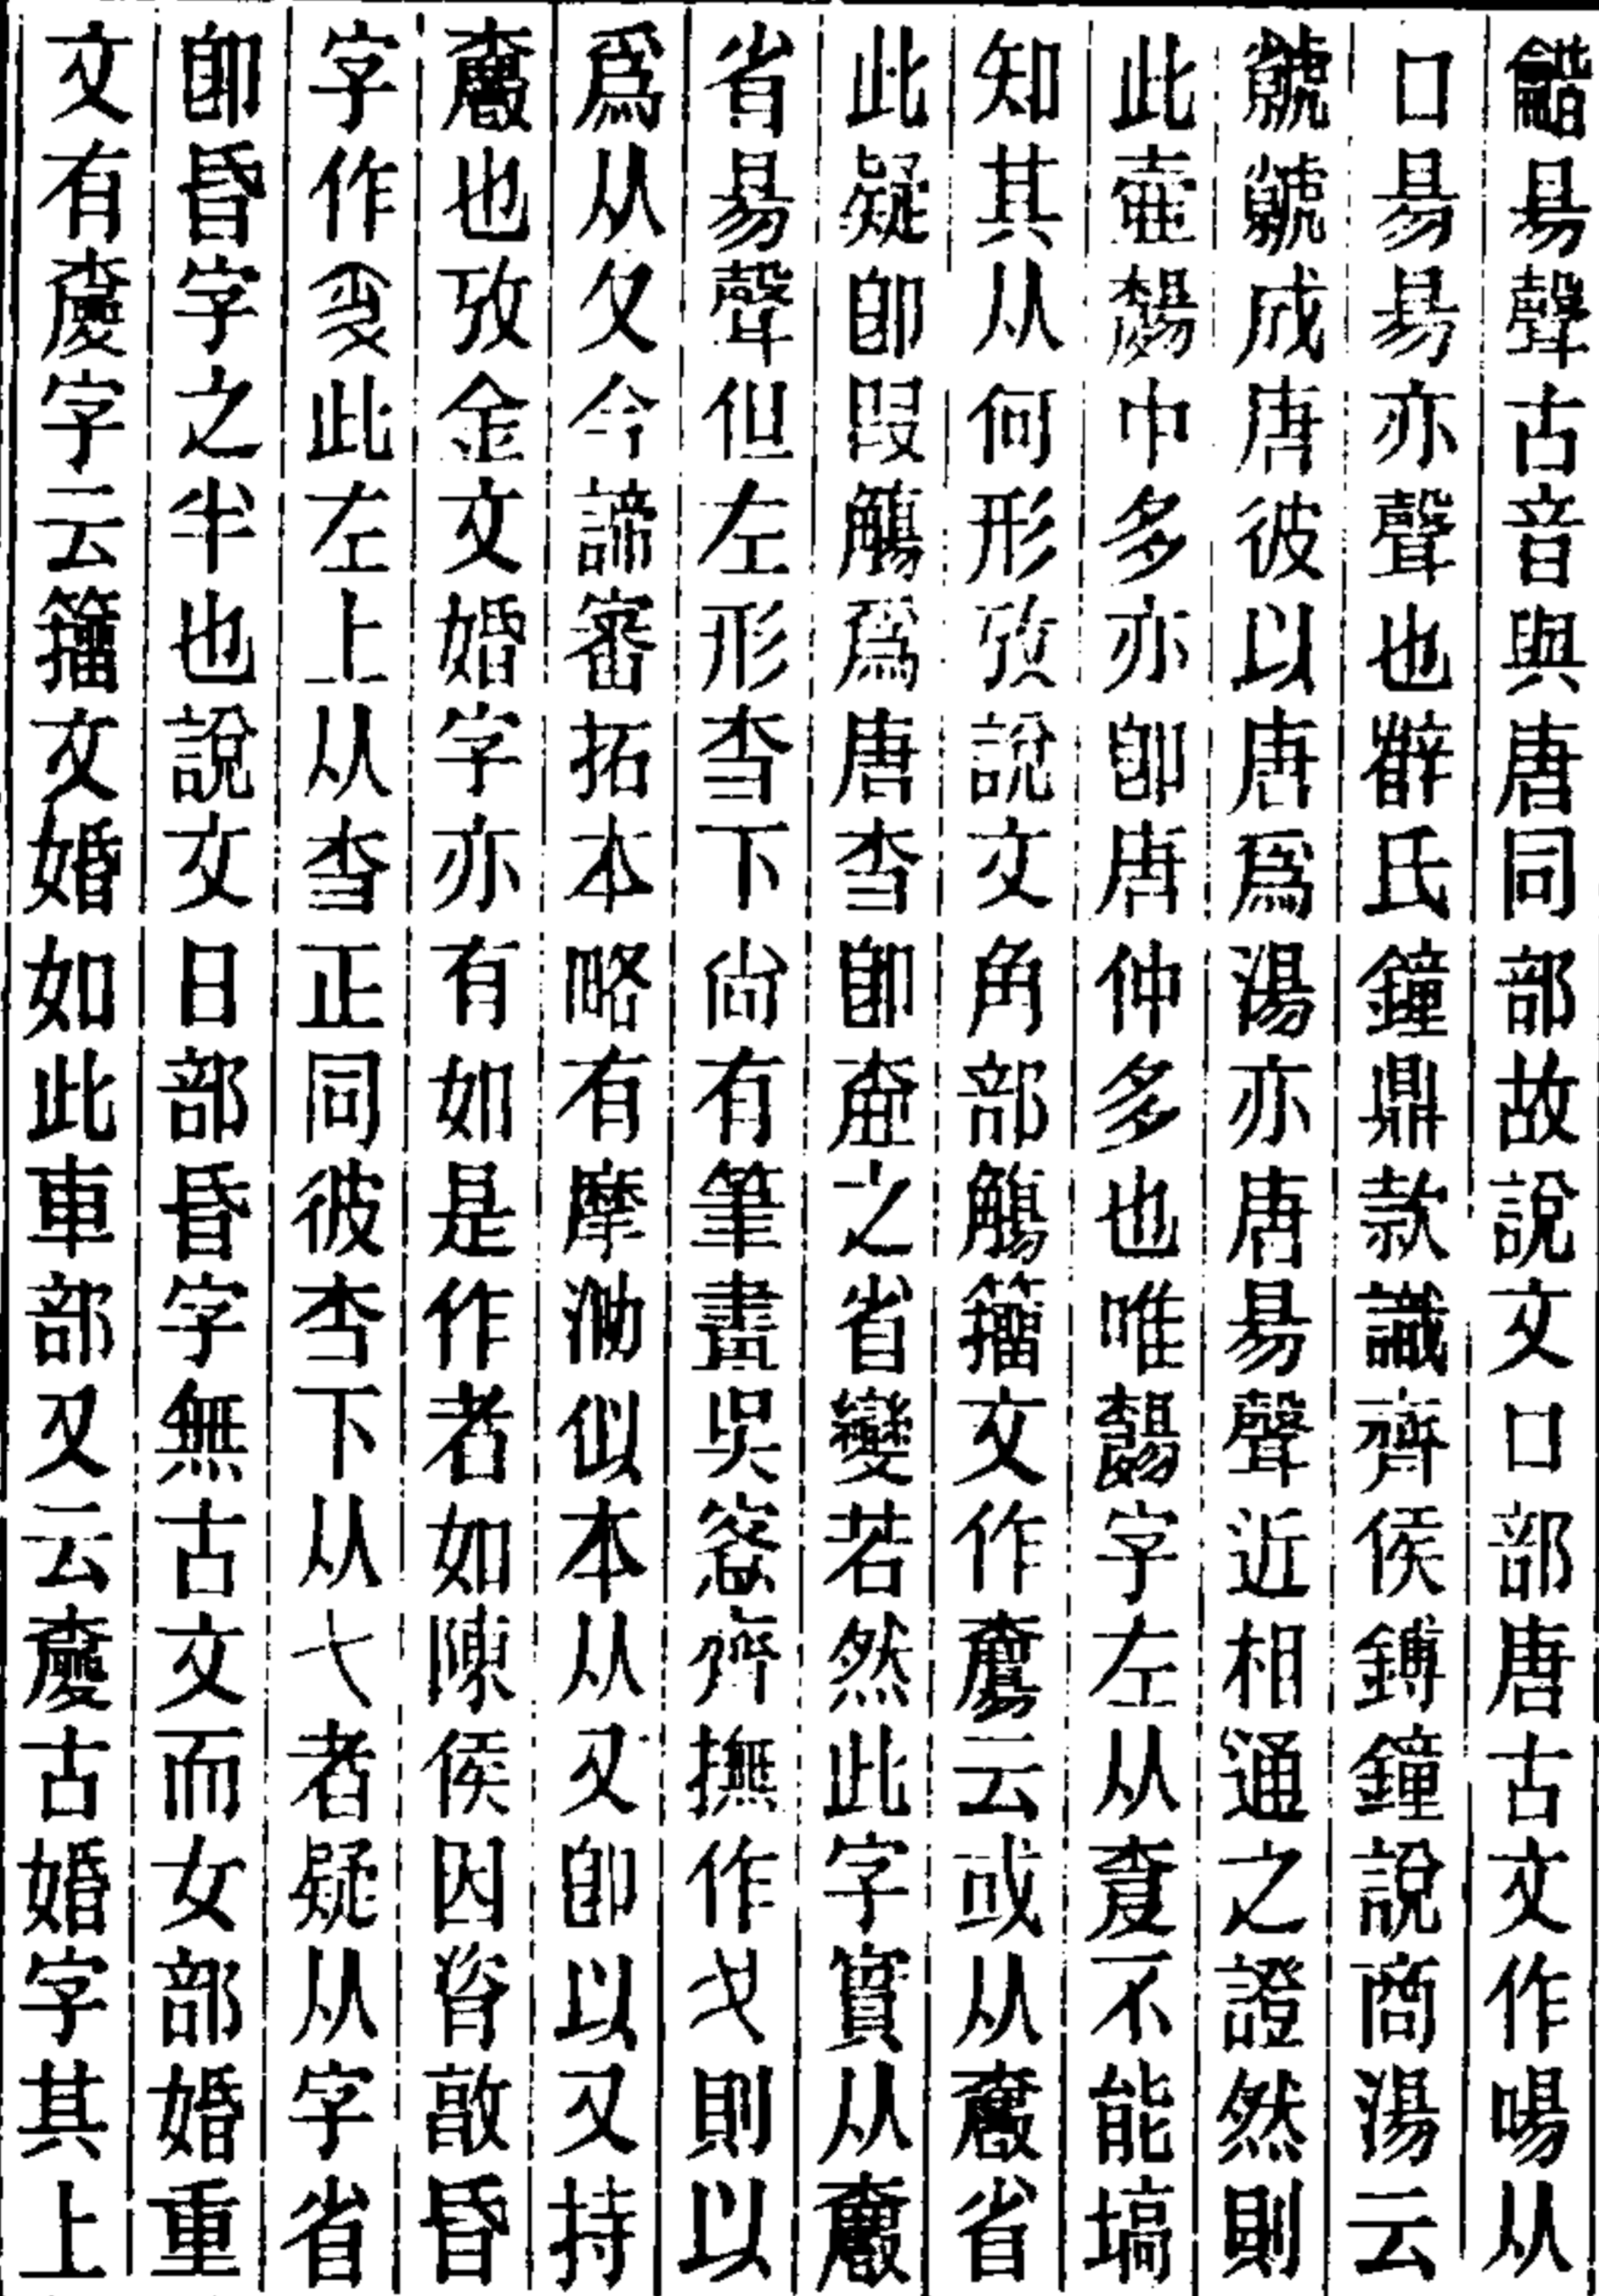 昜聲古音與唐同部故說文口部唐古文作啺从
口昜昜亦聲也辥氏鐘鼎款識齊侯鎛鐘說商湯云
虩虩成唐彼以唐爲湯亦唐昜聲近相通之證然則
此壷中多亦卽唐仲多也唯字左从不能塙
知其从何形攷說文角部觴籒文作云或从省
此疑卽叚觴爲唐卽之省變若然此字實从
省昜聲但左形下尙有筆畫吳窓齊撫作則以
爲从夂今諦審拓本略有摩泐似本从又卽以又持
也攷金文婚字亦有如是作者如陳侯因敦昏
字作此左上从正同彼下从者疑从字省
卽昏字之半也說文日部昏字無古文而女部婚重
文有字云籒文婚如此車部又云古婚字其上